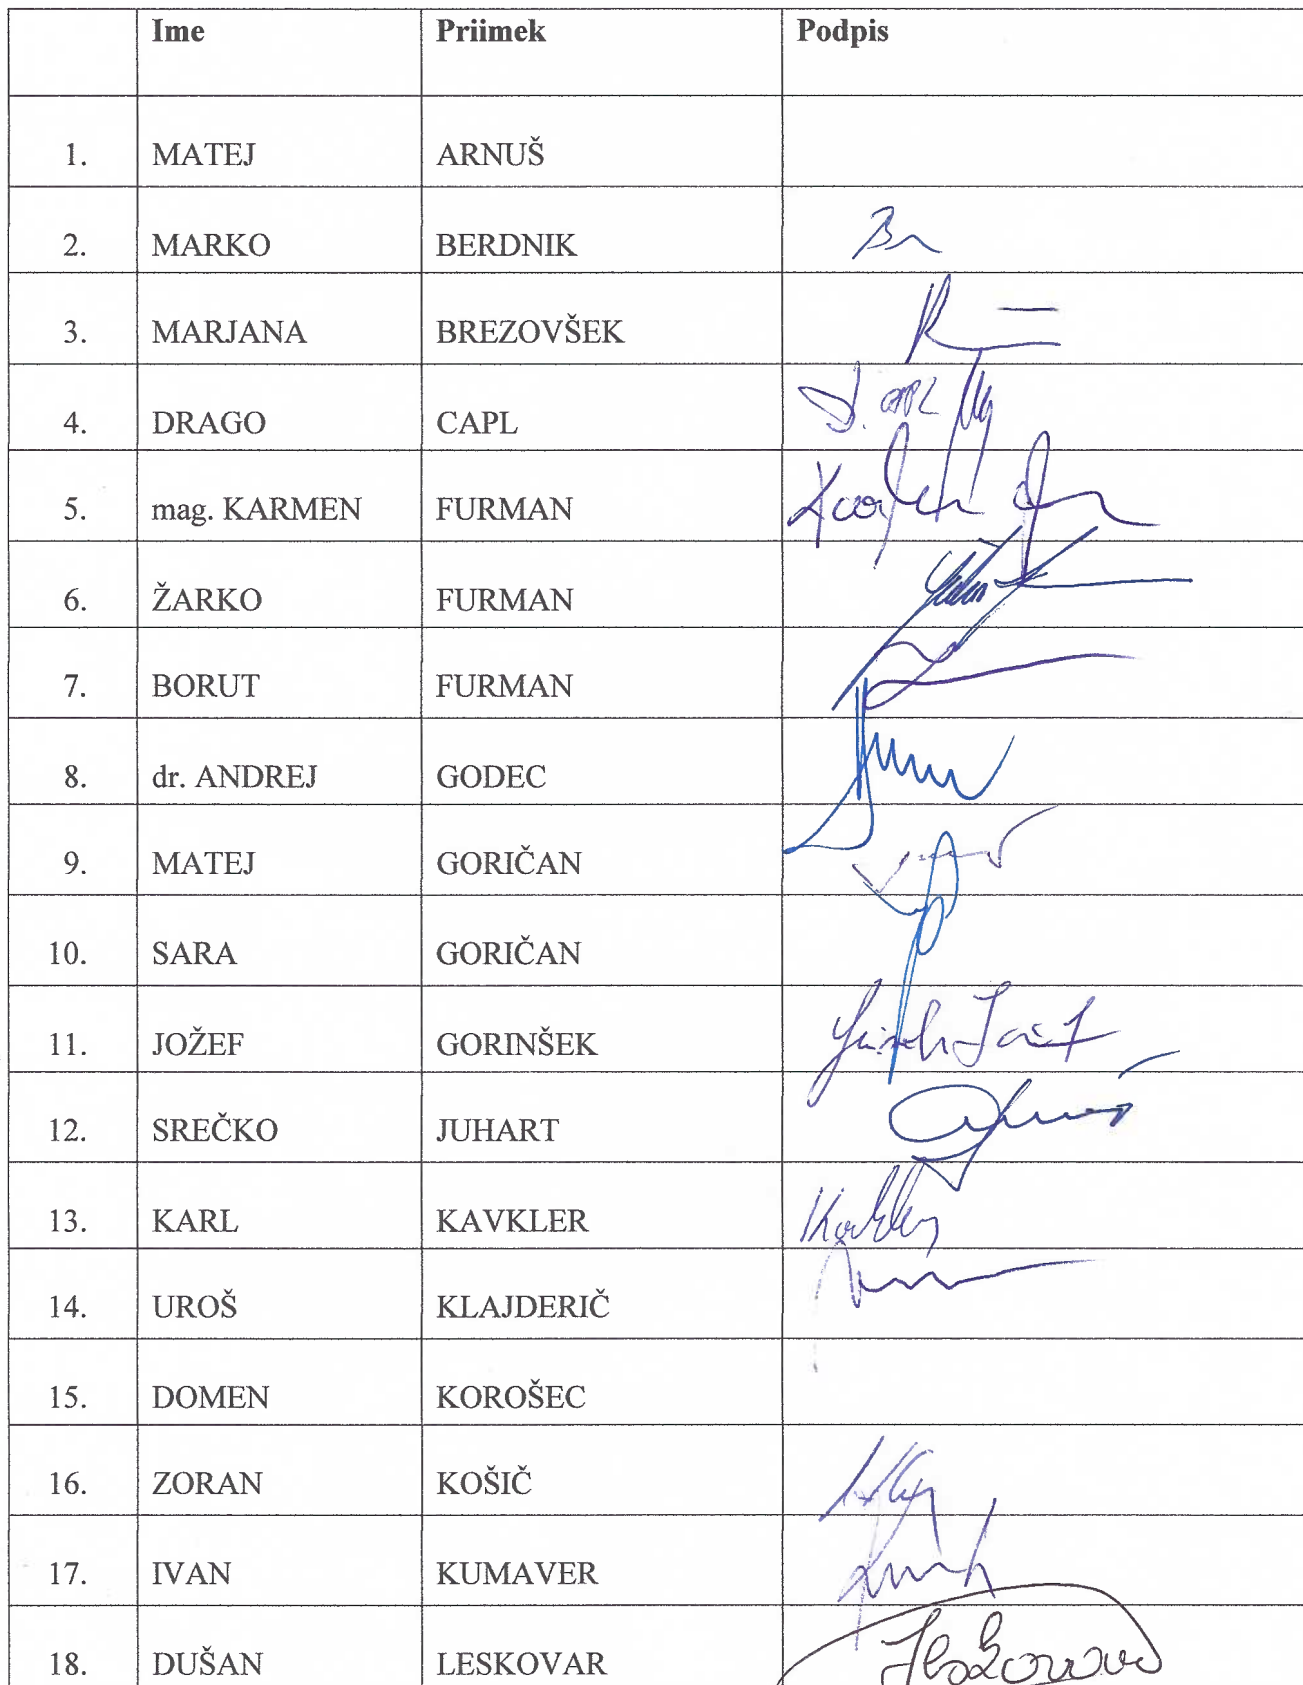 Ime Priimek Podpis
1. MATEJ ARNUŠ
2. MARKO BERDNIK
3. MARJANA BREZOVŠEK
4. DRAGO CAPL D. CAPL
5. mag. KARMEN FURMAN
6. ŽARKO FURMAN
7. BORUT FURMAN
8. dr. ANDREJ GODEC
9. MATEJ GORIČAN
10. SARA GORIČAN
11. JOŽEF GORINŠEK
12. SREČKO JUHART
13. KARL KAVKLER
14. UROŠ KLAJDERIČ
15. DOMEN KOROŠEC
16. ZORAN KOŠIČ
17. IVAN KUMAVER
18. DUŠAN LESKOVAR